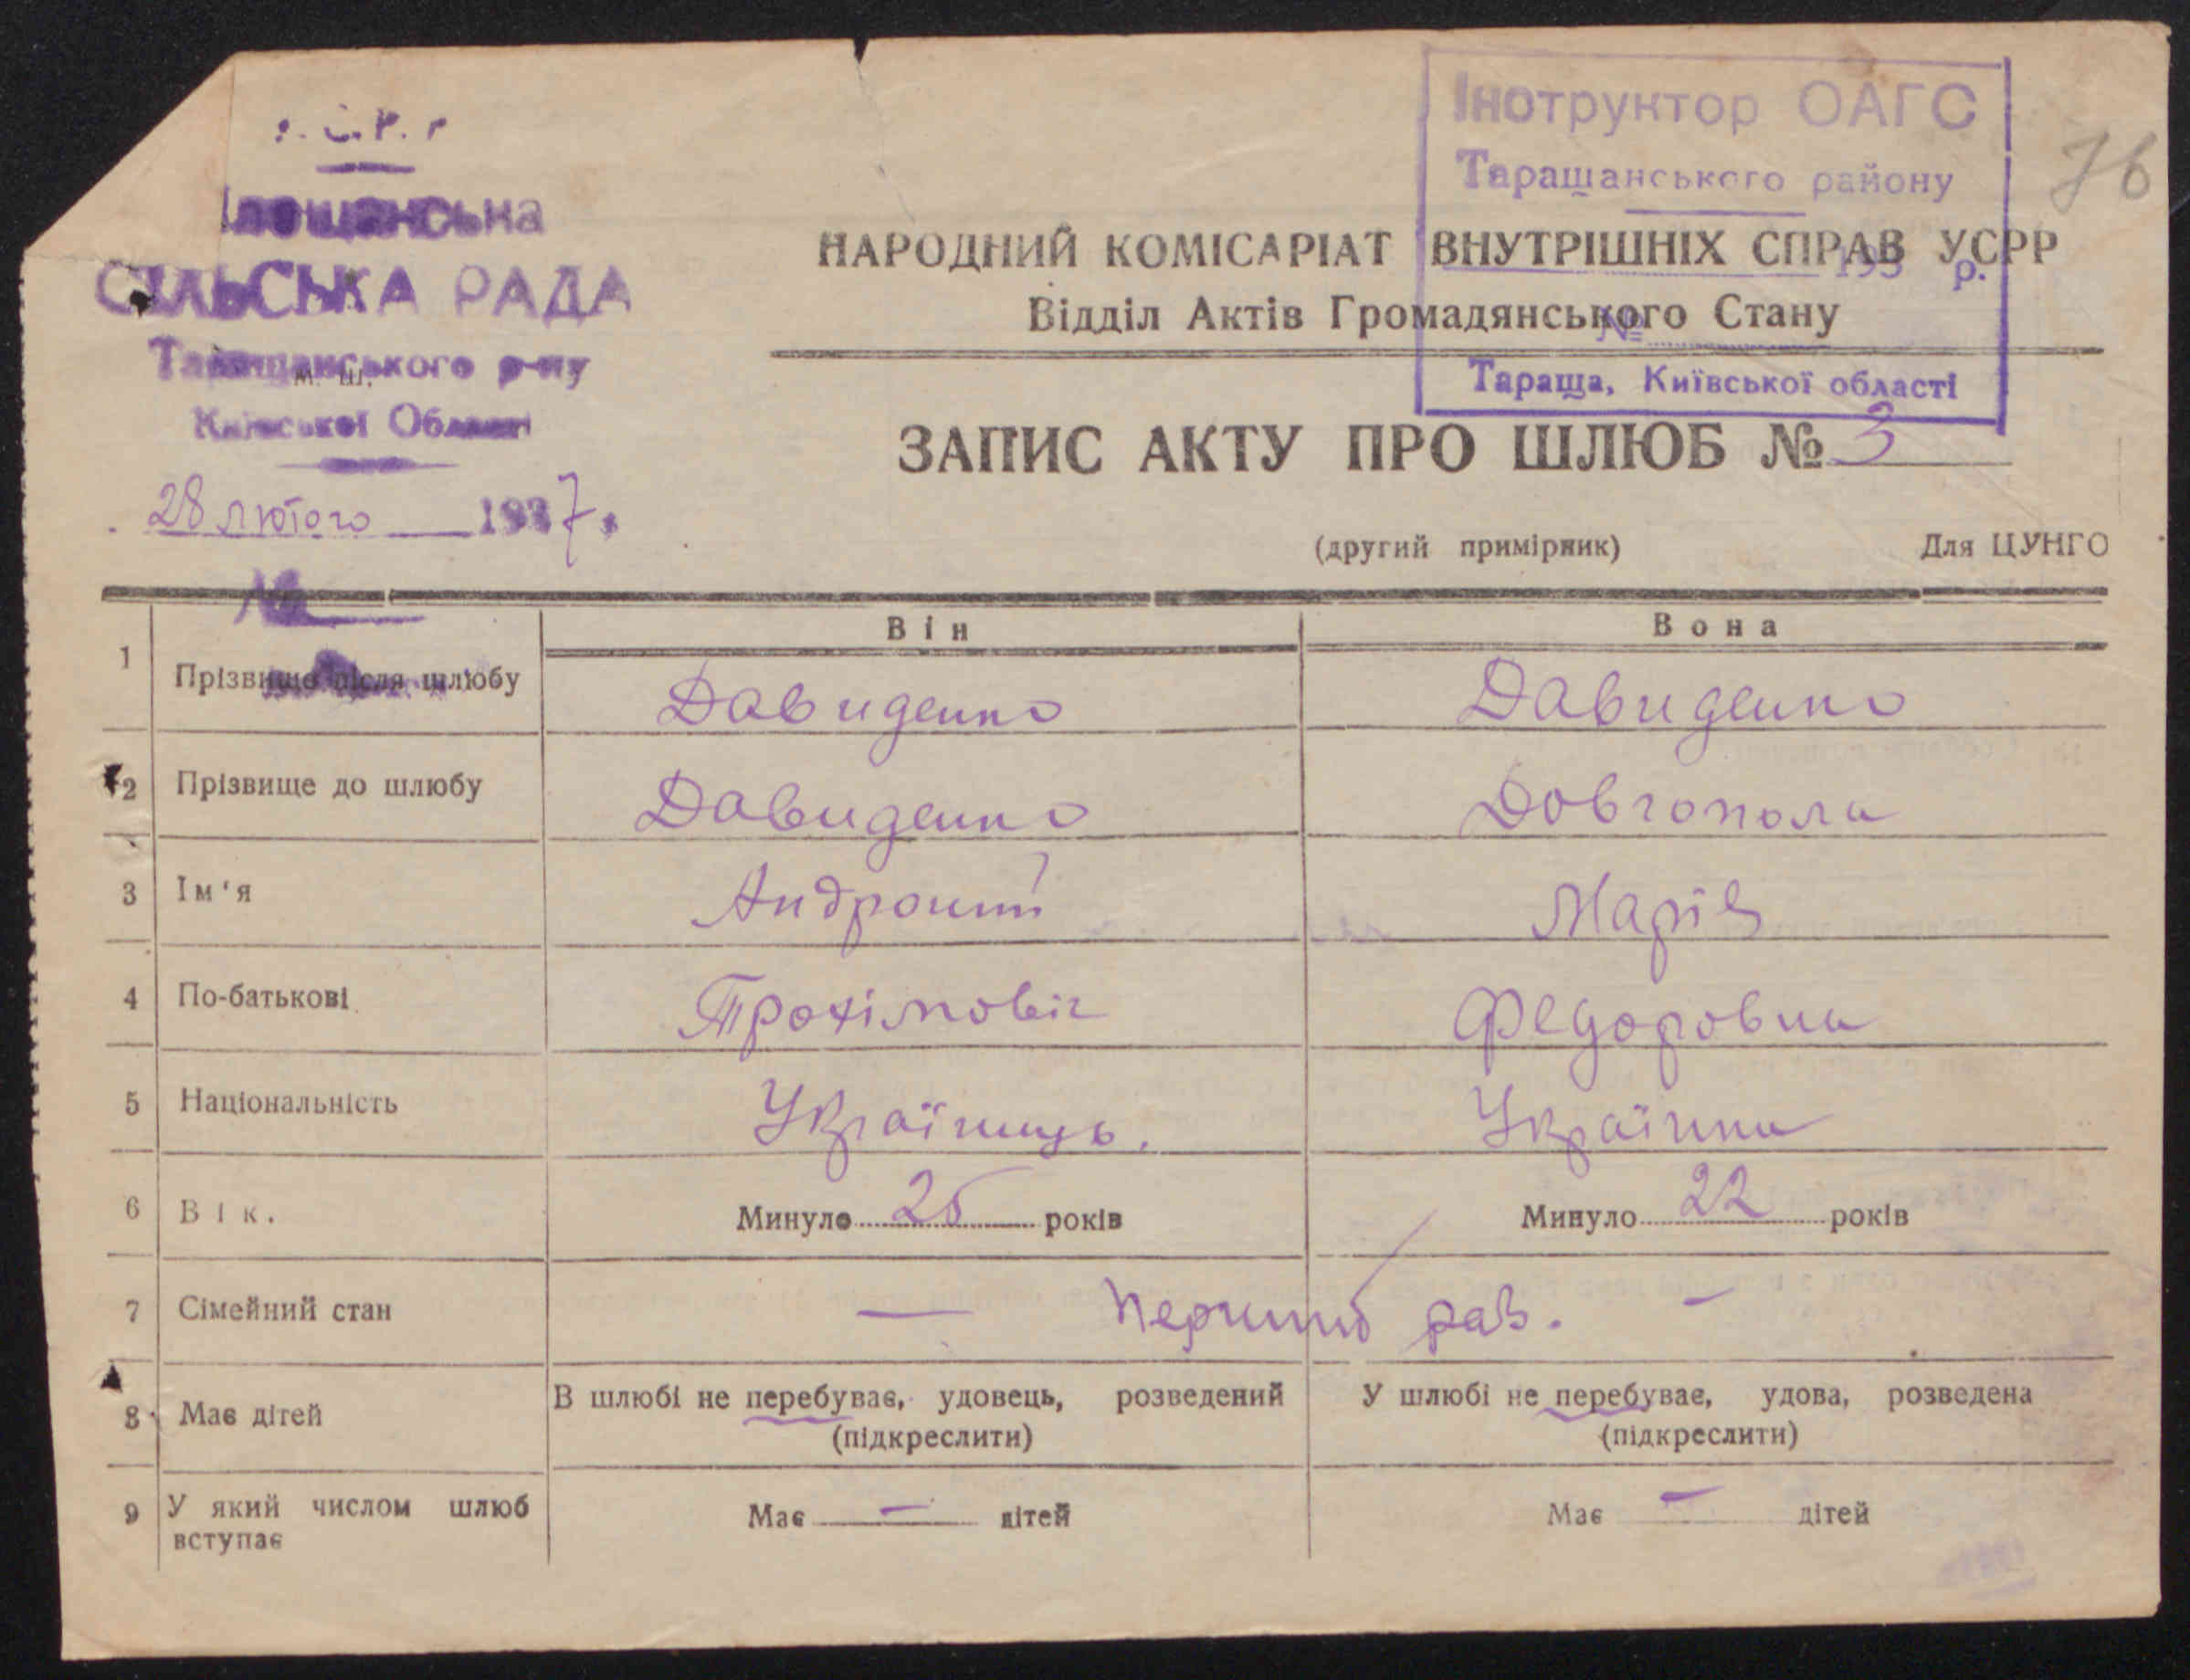 СІЛЬСЬКА РАДА
Таращанського р-ну
Київської Області
28 лютого 1937
№
Інструктор ОАГС
Таращанського району
193 р.
№
Тараща, Київської області
76
НАРОДНИЙ КОМІСАРІАТ ВНУТРІШНІХ СПРАВ УСРР
Відділ Актів Громадянського Стану
ЗАПИС АКТУ ПРО ШЛЮБ № 3
(другий примірник) Для ЦУНГО
Він Вона
1 Прізвище після шлюбу Давиденко Давиденко
2 Прізвище до шлюбу Давиденко Довгопола
3 Ім'я Марія
4 По-батькові Трохімовіч Федоровна
5 Національність Українець. Українка
6 Вік. Минуло 25 років Минуло 22 років
7 Сімейний стан — перший раз. —
8 Має дітей В шлюбі не перебуває, удовець, розведений У шлюбі не перебуває, удова, розведена
(підкреслити) (підкреслити)
9 У який числом шлюб вступає Має — дітей Має — дітей